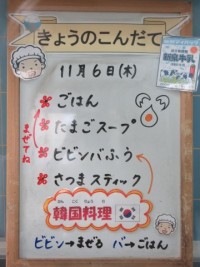 きょうのこんだて
11月6日(木)
ごはん
たまごスープ
ビビンバふう
さつまスティック
まぜてね
かん こく りょう り
韓国料理
ビビン→まぜる バ→ごはん